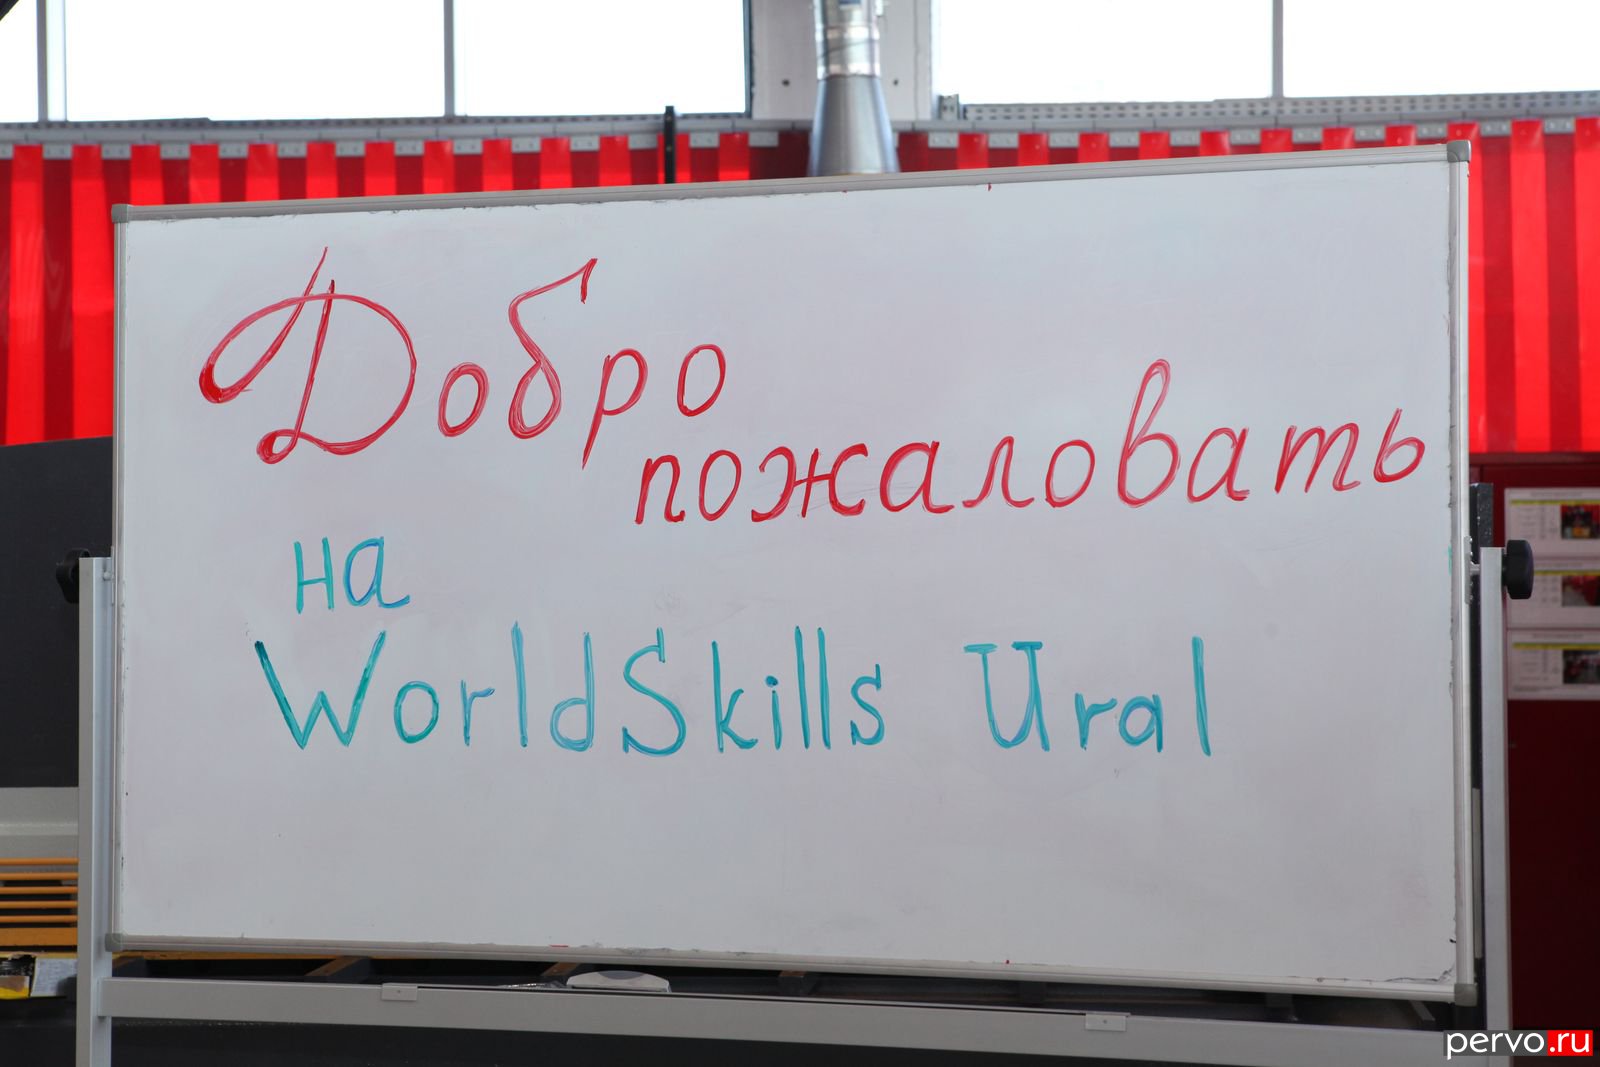 Добро
пожаловать
на
WorldSkills Ural
pervo.ru